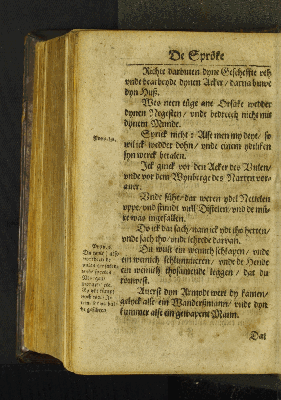 De Spröke
Richte darbuten dyne Geschefte vth
vnde bearbeyde dynen Acker / darna buwe
dyn Huß.
Wes neen tüge ane Orsake wedder
dynen Negesten / vnde bedreeg nicht mit
dynem Munde.
Sprick nicht : Alse men my deyt / so
wil ick wedder dohn / vnde einem ydtliken
syn werck betalen.
Ick ginck vor den Acker des Vulen /
vnde vor dem Wynberge des Narren vor-
auer.
Vnde sühe / dar weren ydel Netteln
vppe / vnd stundt vull Disteln / vnd de mü-
re was ingefallen.
Do ick dat sach / nam ick ydt tho herten /
vnde sach tho / vnde lehrede darvan.
Du wult ein wenich schlapen / vnde
ein wenich schlummeren / vnde de Hende
ein wenich thosamende leggen / dat du
rouwest.
Auerst dyn Armodt wert dy kamen /
gelyck alse ein Wandersmann / vnde dyn
kummer alse ein gewapent Mann.
Dat